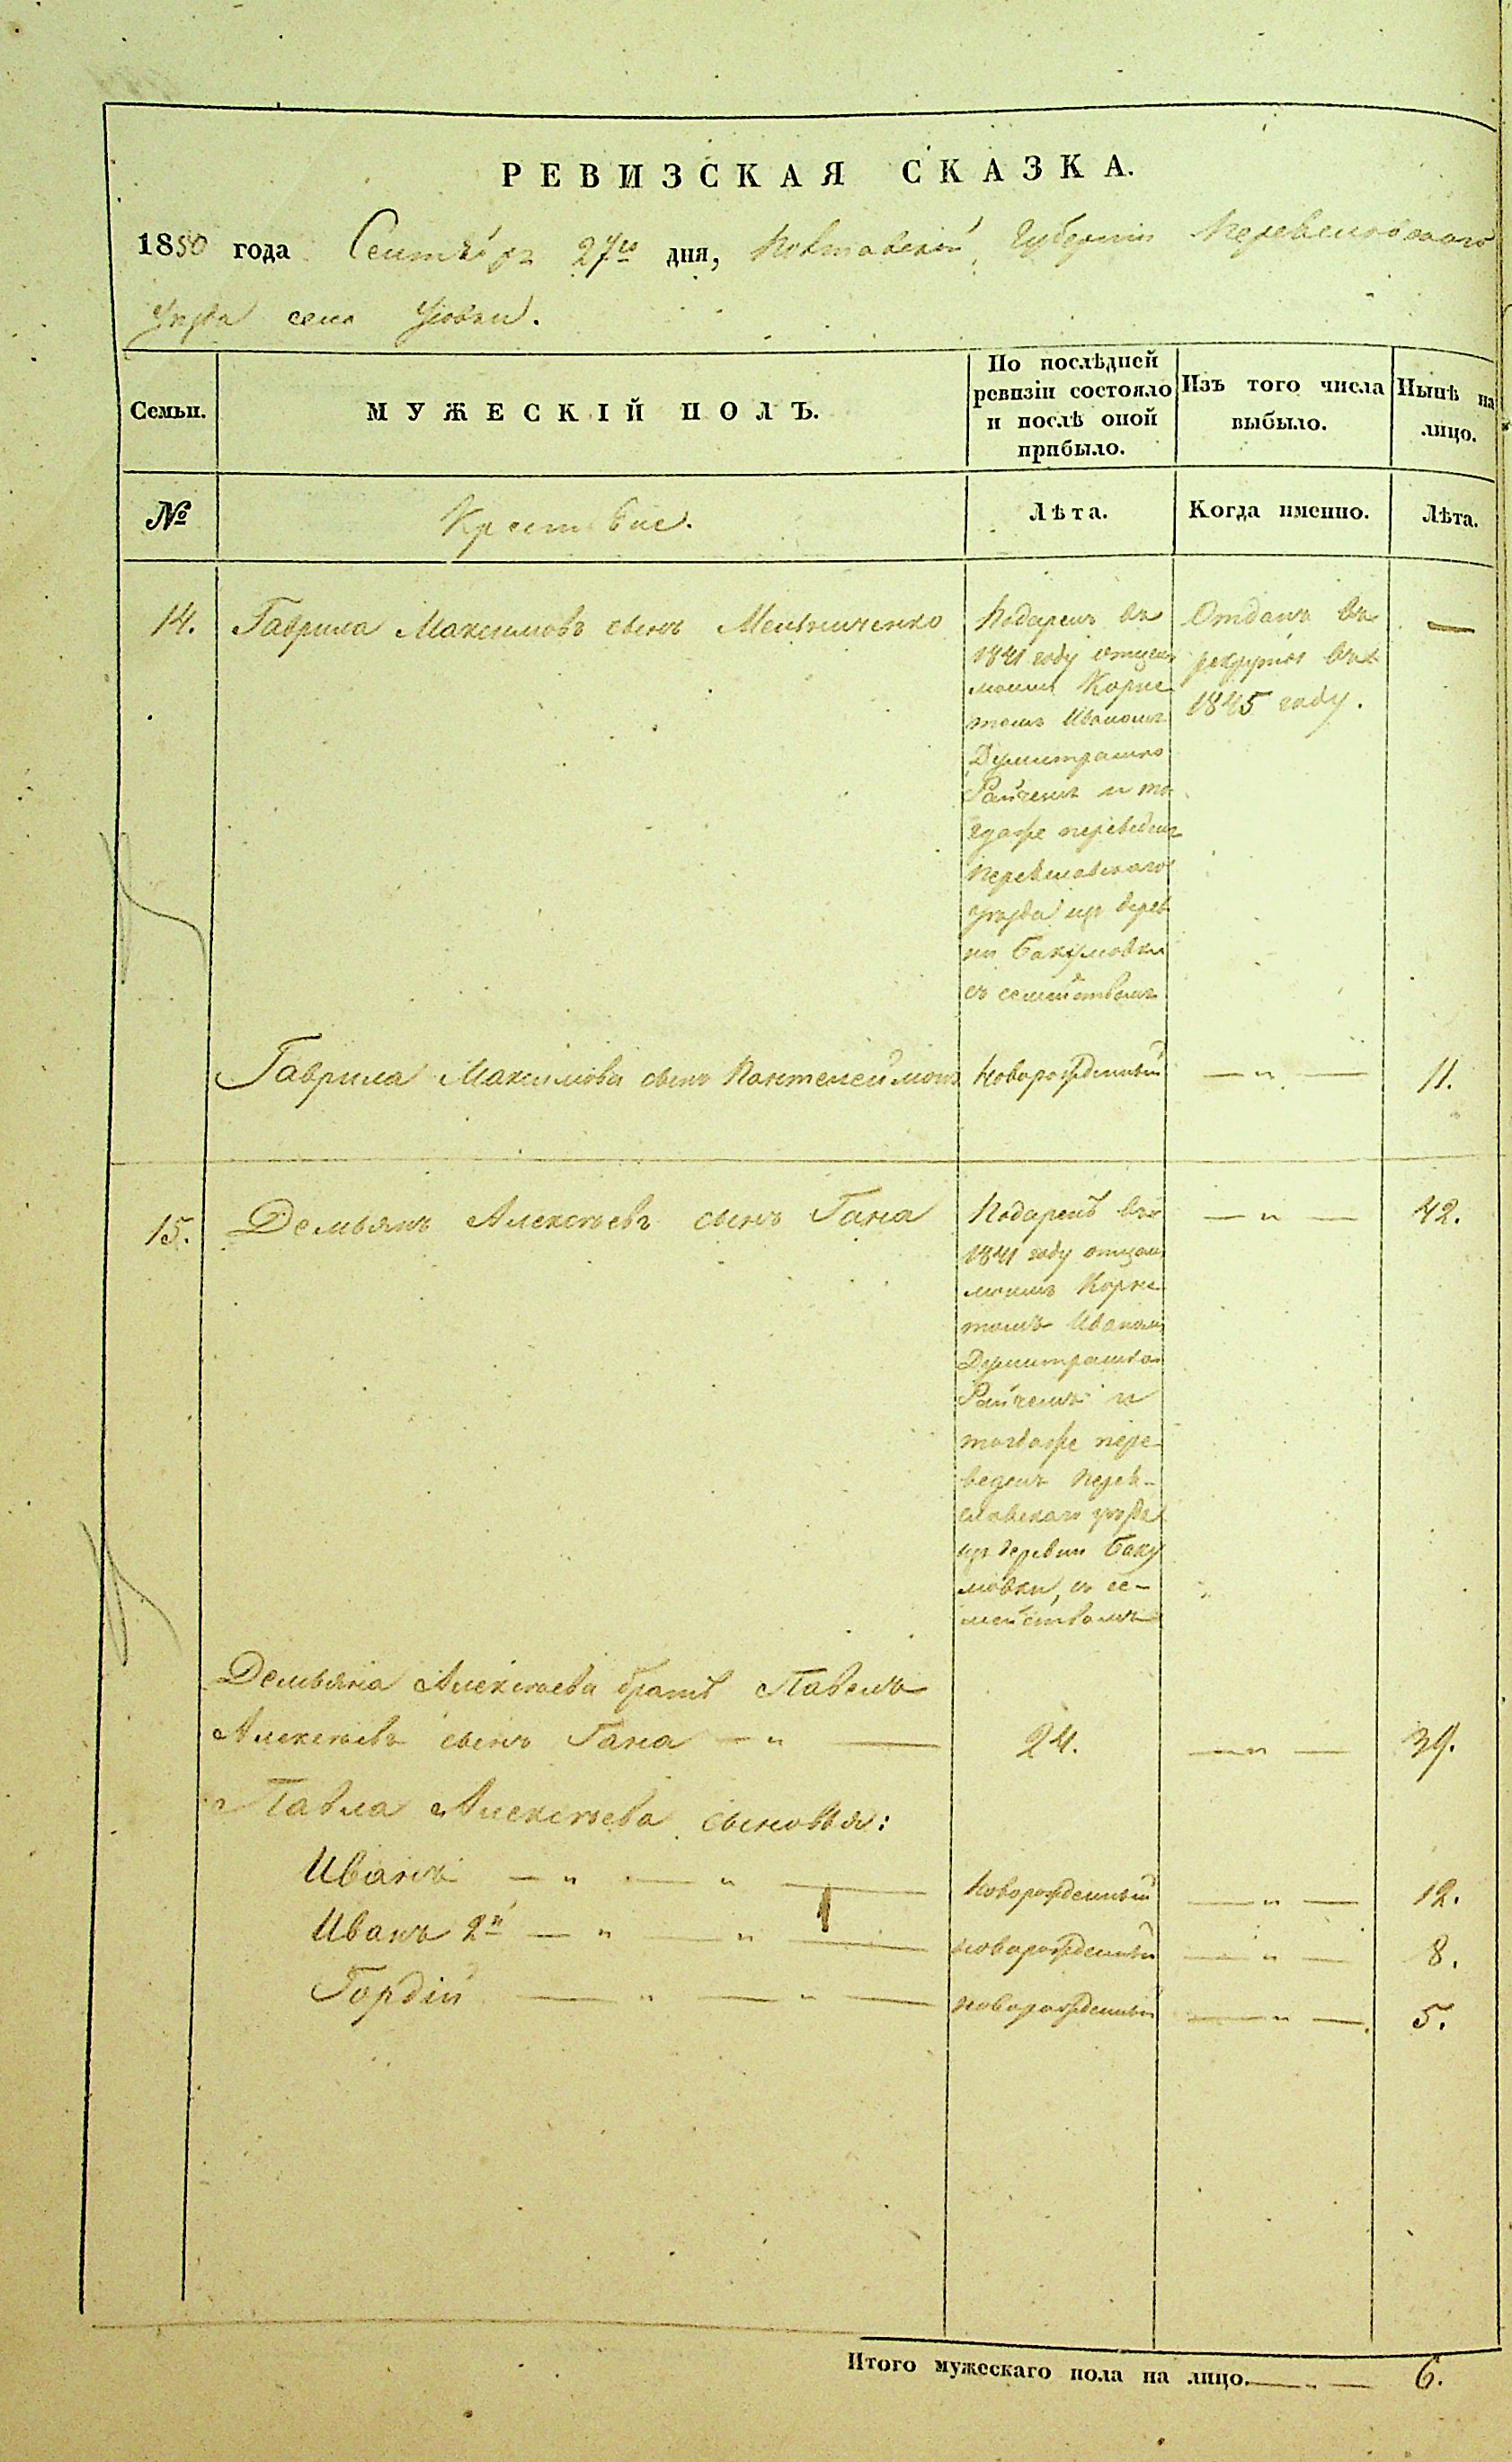 РЕВИЗСКАЯ СКАЗКА.
1850 года Сентября 27го дня, Полтавской Губернии Переяславского
уезда села
Семьи.
МУЖЕСКІЙ ПОЛЪ.
По послѣдней
ревизіи состояло
и послѣ оной
прибыло.
Изъ того числа
выбыло.
Нынѣ на
лицо.
№
Крестьяне.
Лѣта.
Когда именно.
Лѣта.
14. Гаврила Максимовъ сынъ Мельниченко
Подаренъ въ
1841 году отцемъ
моимъ Корне
томъ Иваномъ
Думитрашко
Райчемъ и то
гдаже переведенъ
Переяславского
уезда изъ дерев
ни Бакумовки
съ семействомъ
Отданъ въ
рекруты въ
1845 году.
—
Гаврила Максимова сынъ Пантелеймонъ Новорожденный — " — 11.
15. Демьянъ Алексѣевъ сынъ Гана
Подаренъ въ
1841 году отцемъ
моимъ Корне
томъ Иваномъ
Думитрашко
Райчемъ и
тогдаже пере-
веденъ Перея-
славского уезда
изъ деревни Баку
мовки, съ се-
мействомъ
— " — 42.
Демьяна Алексѣева братъ Павелъ
Алексѣевъ сынъ Гана — " — 24. — " — 39.
Павла Алексѣева сыновья:
Иванъ — " — " — Новорожденный — " — 12.
Иванъ 2й — " — " — новорожденный — " — 8.
Гордій — " — " — новорожденный — " — 5.
Итого мужескаго пола на лицо. — " — 6.